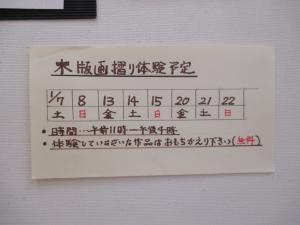 木版画摺り体験予定
1/7 8 13 14 15 20 21 22
土 日 金 土 日 金 土 日
• 時間…午前11時ー午後4時
• 体験していただいた作品はおもちかえり下さい(無料)